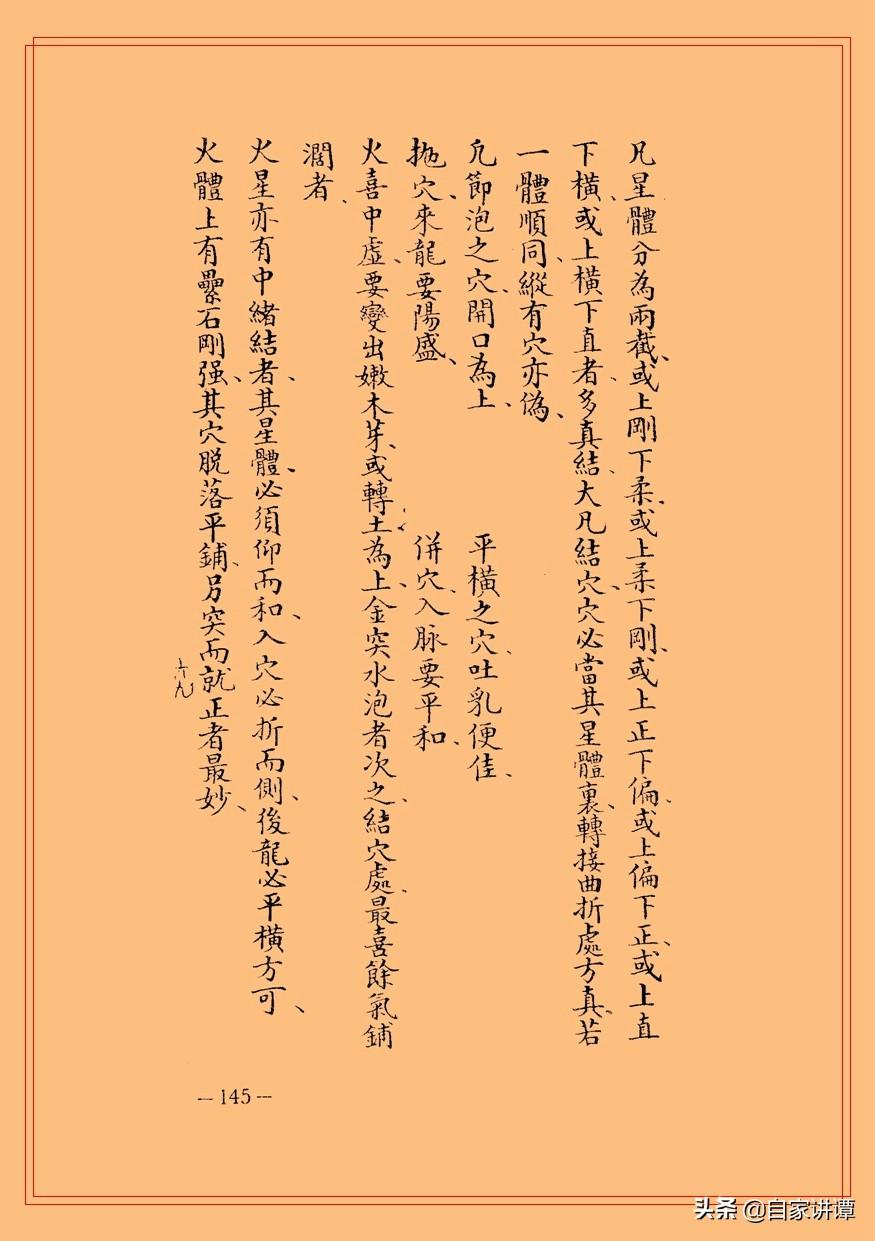 凡星體分為兩截、或上剛下柔、或上柔下剛、或上正下偏、或上偏下正、或上直
下橫、或上橫下直者、多真結、大凡結穴、穴必當其星體裏、轉接曲折處方真、若
一體順同、縱有穴亦偽、
凡節泡之穴、開口為上、 平橫之穴、吐乳便佳、
拋穴、來龍要陽盛、 併穴、入脉要平和、
火喜中虛、要變出嫩木芽、或轉土為上、金突水泡者次之、結穴處、最喜餘氣鋪
濶者、
火星亦有中緒結者、其星體、必須仰而和、入穴必折而側、後龍必平橫方可、
火體上有壘石剛强、其穴脫落平鋪、另突而就正者最妙、
六九
— 145 —
头条 @自家讲谭